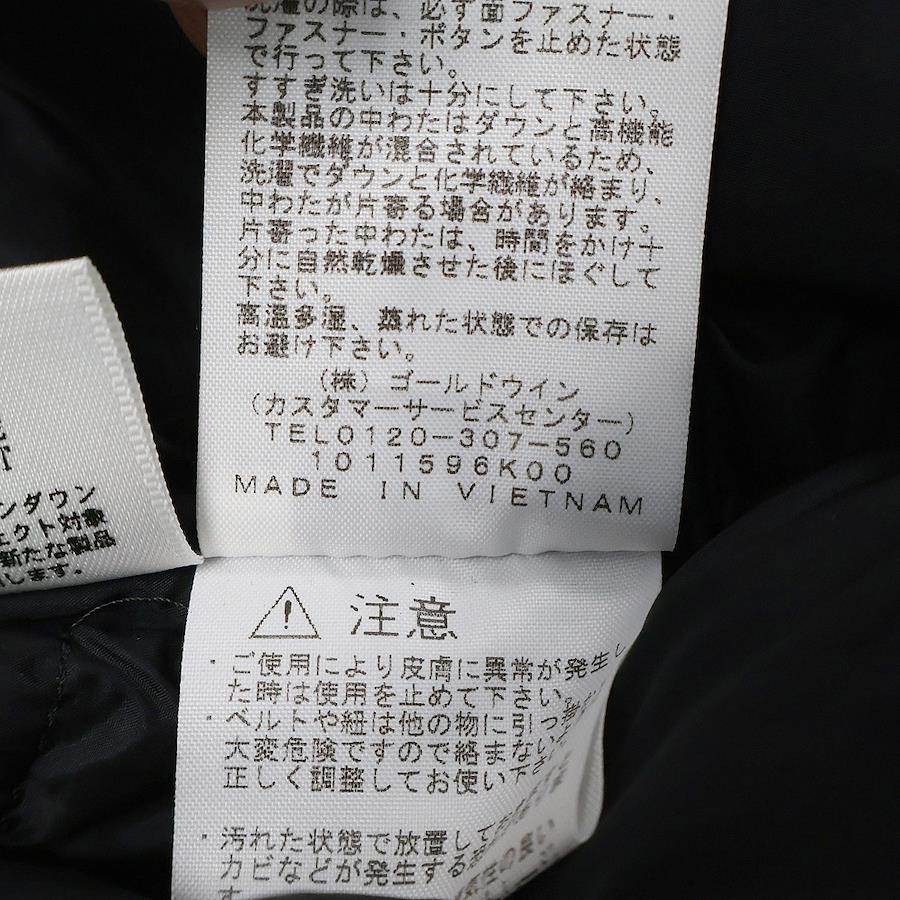 洗濯の際は、必ず面ファスナー・
ファスナー・ボタンを止めた状態
で行って下さい。
すすぎ洗いは十分にして下さい。
本製品の中わたはダウンと高機能
化学繊維が混合されているため、
洗濯でダウンと化学繊維が絡まり、
中わたが片寄る場合があります。
片寄った中わたは、時間をかけ十
分に自然乾燥させた後にほぐして
下さい。
高温多湿、蒸れた状態での保存は
お避け下さい。
(株)ゴールドウイン
(カスタマーサービスセンター)
TEL0120-307-560
1011596K00
MADE IN VIETNAM
ンダウン
ェクト対象
新たな製品
します。
注意
・ご使用により皮膚に異常が発生し
た時は使用を止めて下さい。
・ベルトや紐は他の物に引っ
大変危険ですので絡まない
正しく調整してお使い下さい
・汚れた状態で放置して
カビなどが発生する
気性の良い
す